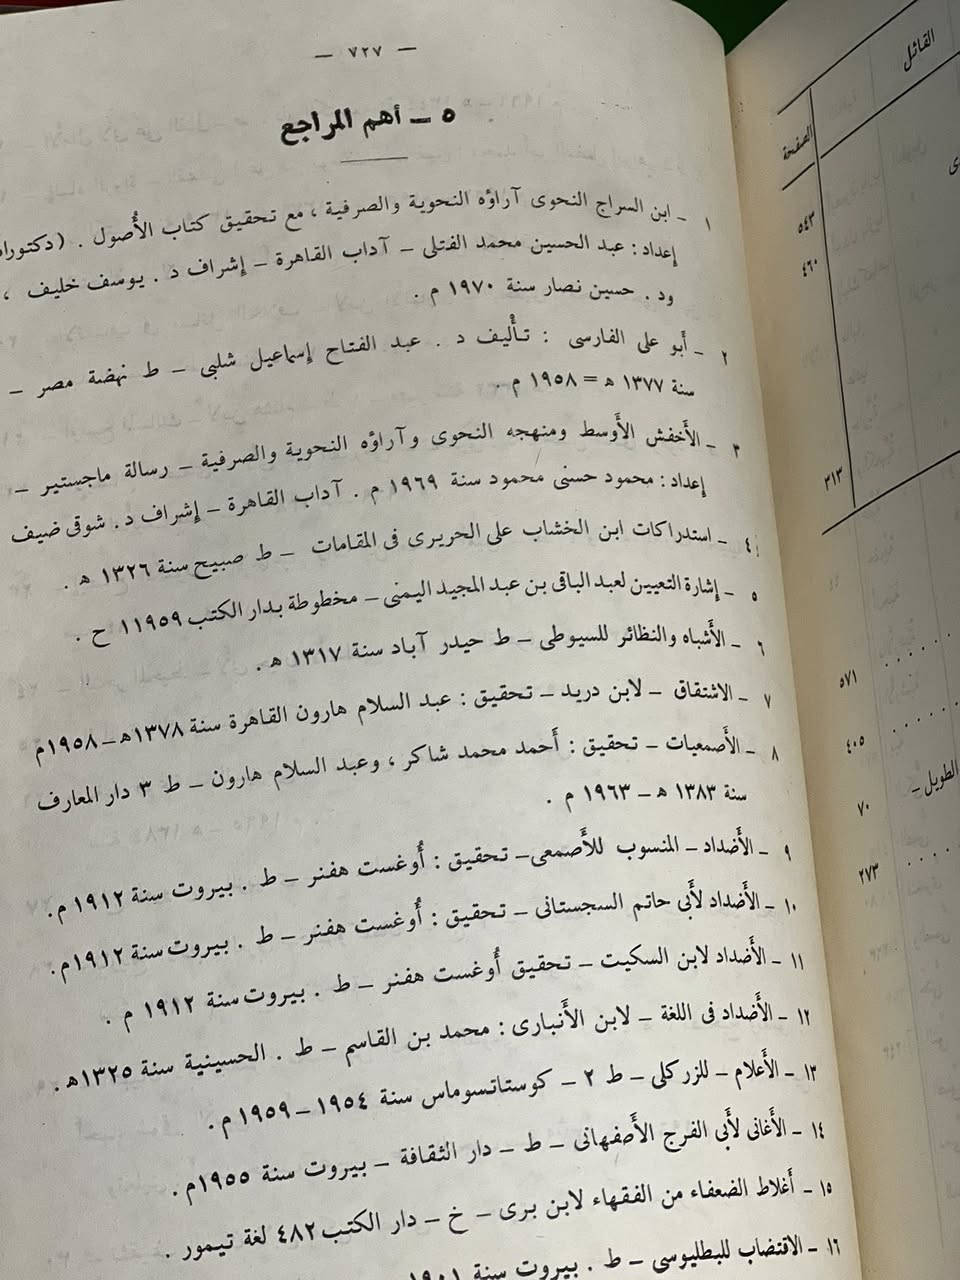 — ٧٢٧ —
٥ ـ أهم المراجع
١ ـ ابن السراج النحوى آراؤه النحوية والصرفية ، مع تحقيق كتاب الأُصول . (دكتوراه
إعداد : عبد الحسين محمد الفتلى – آداب القاهرة – إشراف د . يوسف خليف ،
ود . حسين نصار سنة ١٩٧٠ م .
٢ ـ أبو على الفارسى : تأْليف د . عبد الفتاح إسماعيل شلبى – ط نهضة مصر –
سنة ١٣٧٧ ه = ١٩٥٨ م .
٣ ـ الأَخفش الأَوسط ومنهجه النحوى وآراؤه النحوية والصرفية – رسالة ماجستير –
إعداد : محمود حسنى محمود سنة ١٩٦٩ م . آداب القاهرة – إشراف د . شوقى ضيف
٤ ـ استدراكات ابن الخشاب على الحريرى فى المقامات – ط صبيح سنة ١٣٢٦ ه .
٥ ـ إشارة التعيين لعبد الباقى بن عبد المجيد اليمنى – مخطوطة بدار الكتب ١١٩٥٩ ح .
٦ ـ الأَشباه والنظائر للسيوطى – ط حيدر آباد سنة ١٣١٧ ه .
٧ ـ الاشتقاق – لابن دريد – تحقيق : عبد السلام هارون القاهرة سنة ١٣٧٨ه – ١٩٥٨م
٨ ـ الأَصمعيات – تحقيق : أَحمد محمد شاكر ، وعبد السلام هارون – ط ٣ دار المعارف
سنة ١٣٨٣ ه – ١٩٦٣ م .
٩ ـ الأَضداد – المنسوب للأَصمعى – تحقيق : أُوغست هفنر – ط . بيروت سنة ١٩١٢ م .
١٠ ـ الأَضداد لأَبى حاتم السجستانى – تحقيق : أُوغست هفنر – ط . بيروت سنة ١٩١٢م .
١١ ـ الأَضداد لابن السكيت – تحقيق أُوغست هفنر – ط . بيروت سنة ١٩١٢ م .
١٢ ـ الأَضداد فى اللغة – لابن الأَنبارى : محمد بن القاسم – ط . الحسينية سنة ١٣٢٥ه .
١٣ ـ الأَعلام – للزركلى – ط ٢ – كوستاتسوماس سنة ١٩٥٤ – ١٩٥٩ م .
١٤ ـ الأَغانى لأَبى الفرج الأَصفهانى – ط – دار الثقافة – بيروت سنة ١٩٥٥م .
١٥ ـ أَغلاط الضعفاء من الفقهاء لابن برى – خ – دار الكتب ٤٨٢ لغة تيمور .
١٦ ـ الاقتضاب للبطليوسى – ط . بيروت سنة ١٩٠١
القائل
الصفحة
٥٤٣
٤٦٠
٣١٣
٥٧١
٤٠٥
الطويل –
٧٠
٢٧٣